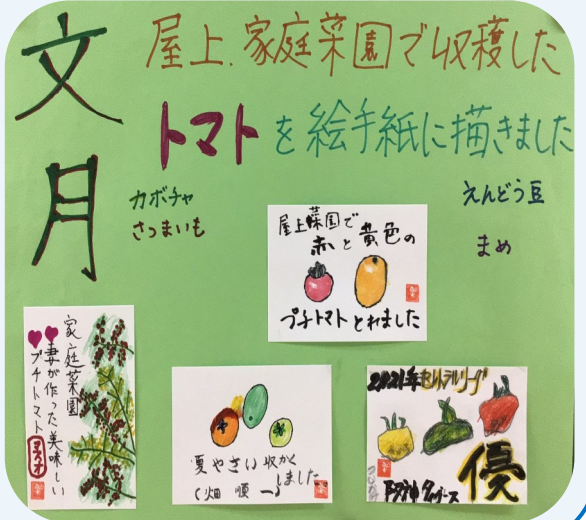 文月
屋上.家庭菜園で収穫した
トマトを絵手紙に描きました
カボチャ
さつまいも
えんどう豆
まめ
屋上菜園で
赤と黄色の
プチトマトとれました
家庭菜園
妻が作った美味しい
プチトマト
夏やさい収かく
しました
(畑 順一)
2021年セントラルリーグ
優
阪神タイガース